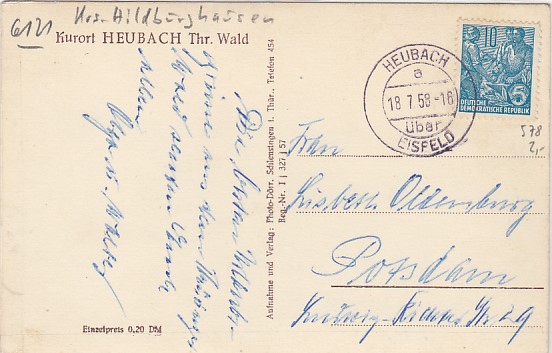 6121 Krs. Hildburghausen
Kurort HEUBACH Thr. Wald
Die besten
Grüsse aus dem Thüringer
Wald senden Euch
allen
Olga u.
Einzelpreis 0,20 DM
Aufnahme und Verlag: Photo-Dörr, Schleusingen i. Thür., Telefon 454
Reg.-Nr. I j 327 57
HEUBACH
a
18.7.58-16
über
EISFELD
10
5
DEUTSCHE
DEMOKRATISCHE REPUBLIK
578
2,-
Frau
Lisbeth Oldenburg
Potsdam
Ludwig-Richter Str 29